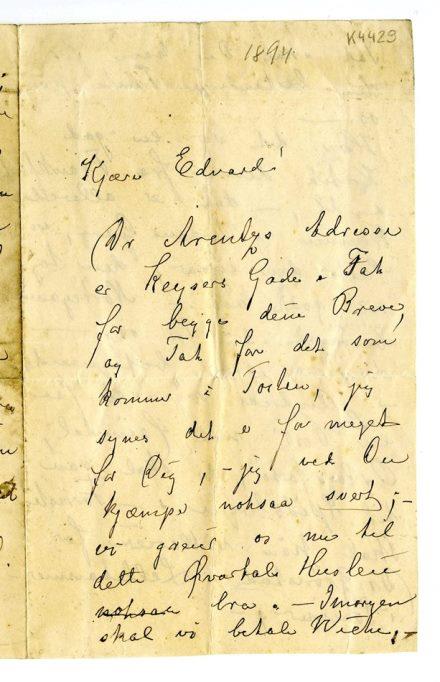 K4429
1894
Kjære Edvard!
Dr Arentzs Adresse
er Keysers Gade. Tak
for begge dine Breve,
og Tak for det som
kommer i Posten, jeg
synes det er for meget
for Dig, – jeg ved Du
kjæmper noksaa svert; –
vi greier os nu til
dette Qvartals Husleie
noksaa bra. – Imorgen
skal vi betale